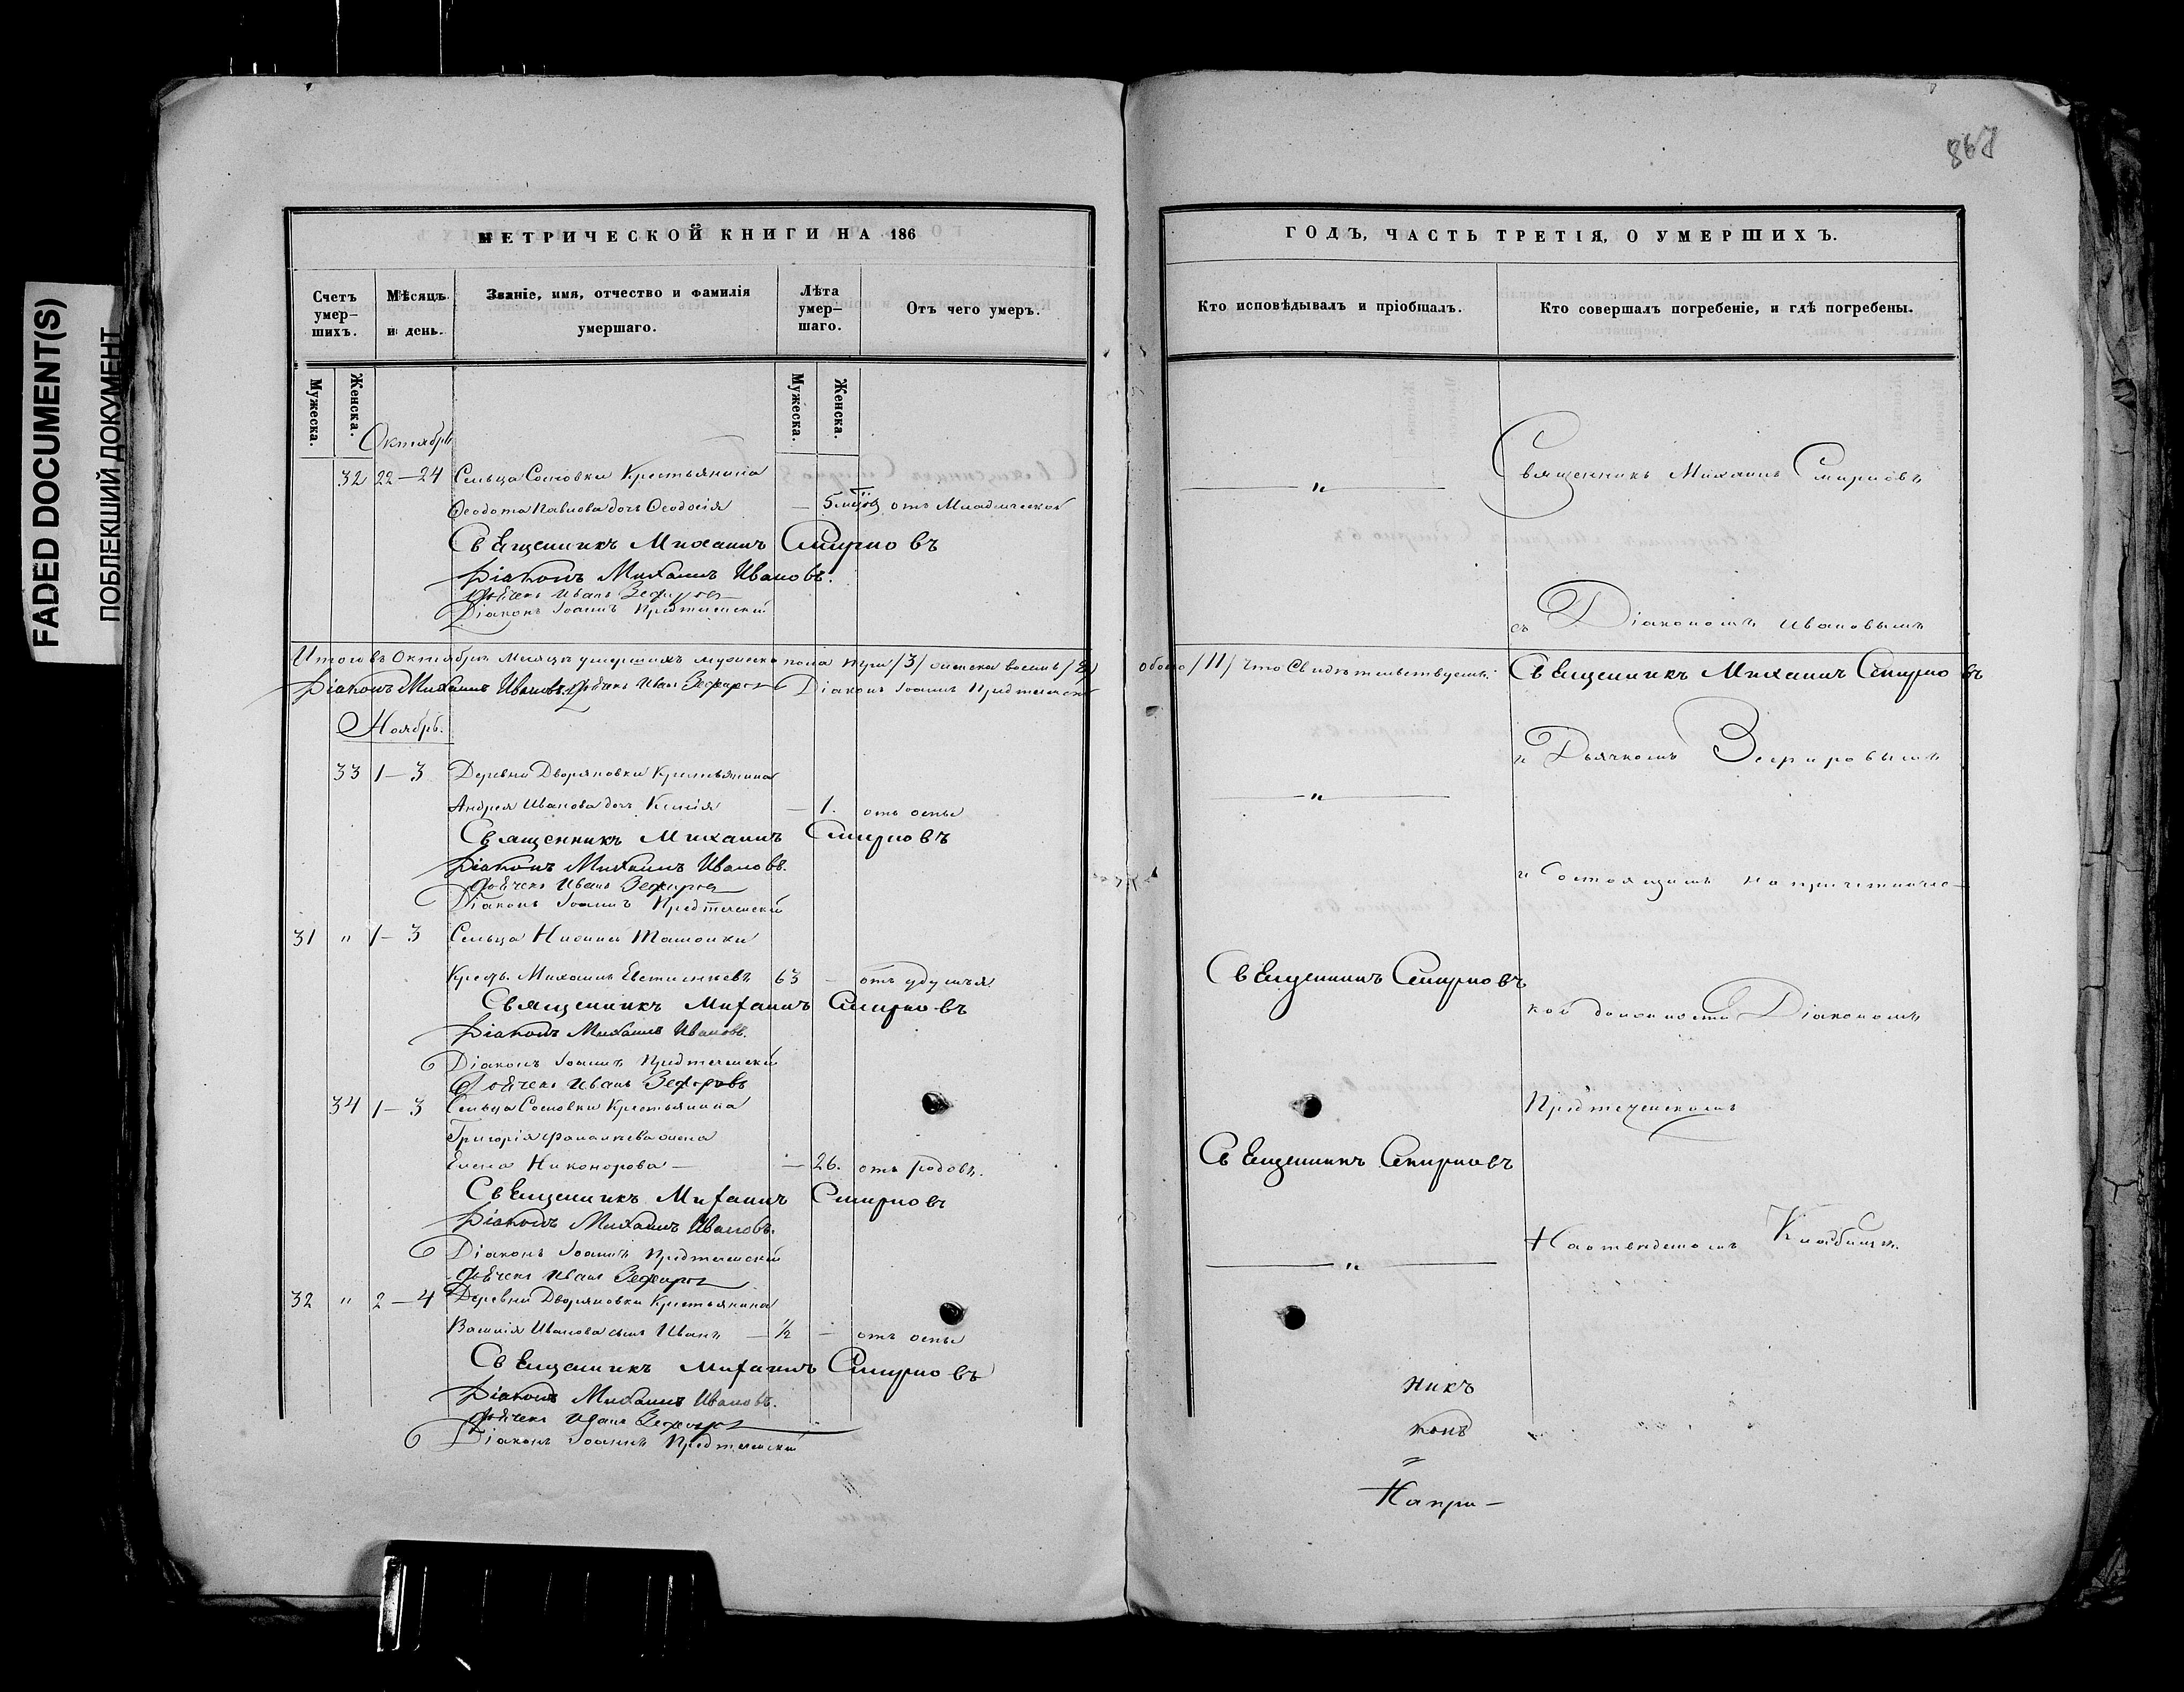 FADED DOCUMENT(S)
ПОБЛЕКШИЙ ДОКУМЕНТ
867
МЕТРИЧЕСКОЙ КНИГИ НА 186
Счетъ умер-шихъ.
Мѣсяцъ и день.
Званіе, имя, отчество и фамилія умершаго.
Лѣта умер-шаго.
Отъ чего умеръ.
Мужеска.
Женска.
Мужеска.
Женска.
Октябрь
32 22-24 Сельца Сосновки Крестьянина
Ѳеодота Павлова дочь Ѳеодосія — 5 отъ Младенческой
Священникъ Михаилъ Смирновъ
Діаконъ Михаилъ Ивановъ.
Дьячекъ Иванъ Зефировъ
Діаконъ Іоаннъ Предтеченскій
Итого въ Октябрѣ Месяцѣ умершихъ мужеска пола три /3/ женска восемь /8/
Діаконъ Михаилъ Ивановъ. Дьячекъ Иванъ Зефировъ Діаконъ Іоаннъ Предтеченскій
Ноябрь.
33 1-3 Деревни Дворяновки Крестьянина
Андрея Иванова дочь — 1. отъ оспы
Священникъ Михаилъ Смирновъ
Діаконъ Михаилъ Ивановъ.
Дьячекъ Иванъ Зефировъ
Діаконъ Іоаннъ Предтеченскій
31 " 1-3 Сельца
Крест. Михаилъ 63 - отъ удушья
Священникъ Михаилъ Смирновъ
Діаконъ Михаилъ Ивановъ.
Діаконъ Іоаннъ Предтеченскій
Дьячекъ Иванъ Зефировъ
34 1-3 Сельца Сосновки Крестьянина
Григорія жена
Елена Никонорова — — 26. отъ родовъ.
Священникъ Михаилъ Смирновъ
Діаконъ Михаилъ Ивановъ.
Діаконъ Іоаннъ Предтеченскій
Дьячекъ Иванъ Зефировъ
32 " 2-4 Деревни Дворяновки Крестьянина
Василія Иванова сынъ Иванъ — ½ - отъ оспы
Священникъ Михаилъ Смирновъ
Діаконъ Михаилъ Ивановъ.
Дьячекъ Иванъ Зефировъ
Діаконъ Іоаннъ Предтеченскій
ГОДЪ, ЧАСТЬ ТРЕТІЯ, О УМЕРШИХЪ.
Кто исповѣдывалъ и пріобщалъ.
Кто совершалъ погребеніе, и гдѣ погребены.
— " —
Священникъ Михаилъ Смирновъ
съ Діакономъ Ивановымъ
обоего /11/ Что Свидѣтельствуемъ: Священникъ Михаилъ Смирновъ
и Дьячкомъ Зефировымъ
— " —
и Состоящимъ на причетничес-
Священникъ Смирновъ
кой должности Діакономъ
Предтеченскимъ
Священникъ Смирновъ
На отведеномъ Кладбищѣ.
— " —
никъ
конъ
=
Напри-